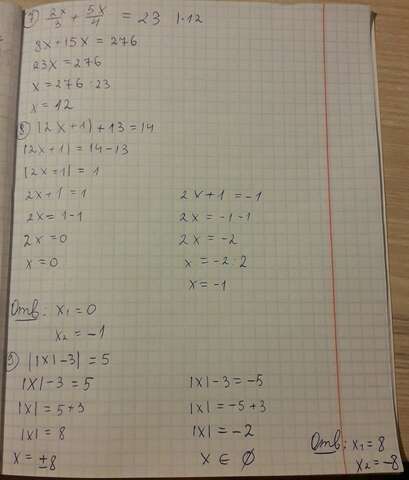 7) 2x/3 + 5x/4 = 23 |·12
8x+15x = 276
23x = 276
x = 276 : 23
x = 12
8) |2x+1| + 13 = 14
|2x+1| = 14-13
|2x+1| = 1
2x+1 = 1
2x = 1-1
2x = 0
x = 0
2x+1 = -1
2x = -1-1
2x = -2
x = -2 : 2
x = -1
Отв: x₁ = 0
x₂ = -1
9) ||x|-3| = 5
|x|-3 = 5
|x| = 5+3
|x| = 8
x = ±8
|x|-3 = -5
|x| = -5+3
|x| = -2
x ∈ Ø
Отв: x₁ = 8
x₂ = -8